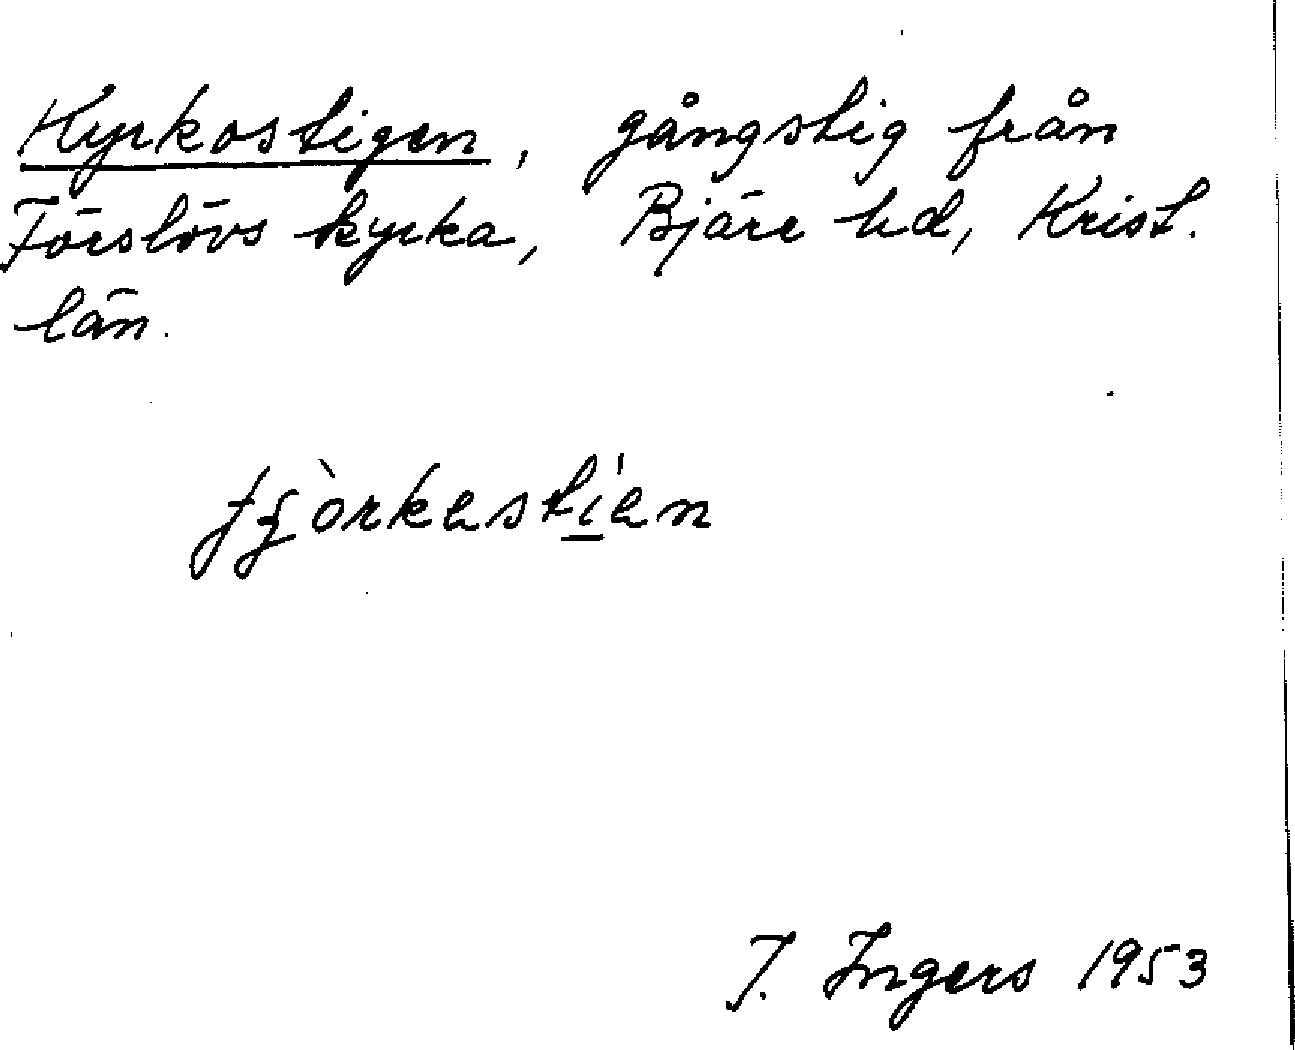 Kyrkostigen, gångstig från
Förslövs kyrka, Bjäre hd, Krist.
län.
tʃòrkestíen
I. Ingers 1953